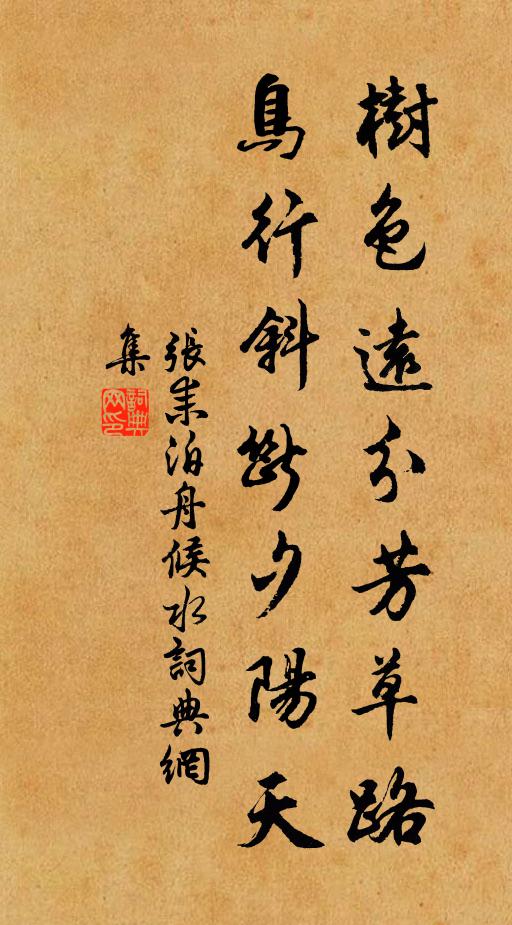 樹色遠分芳草路
鳥行斜斷夕陽天
張耒泊舟候水詞典網
集
詞典
网印